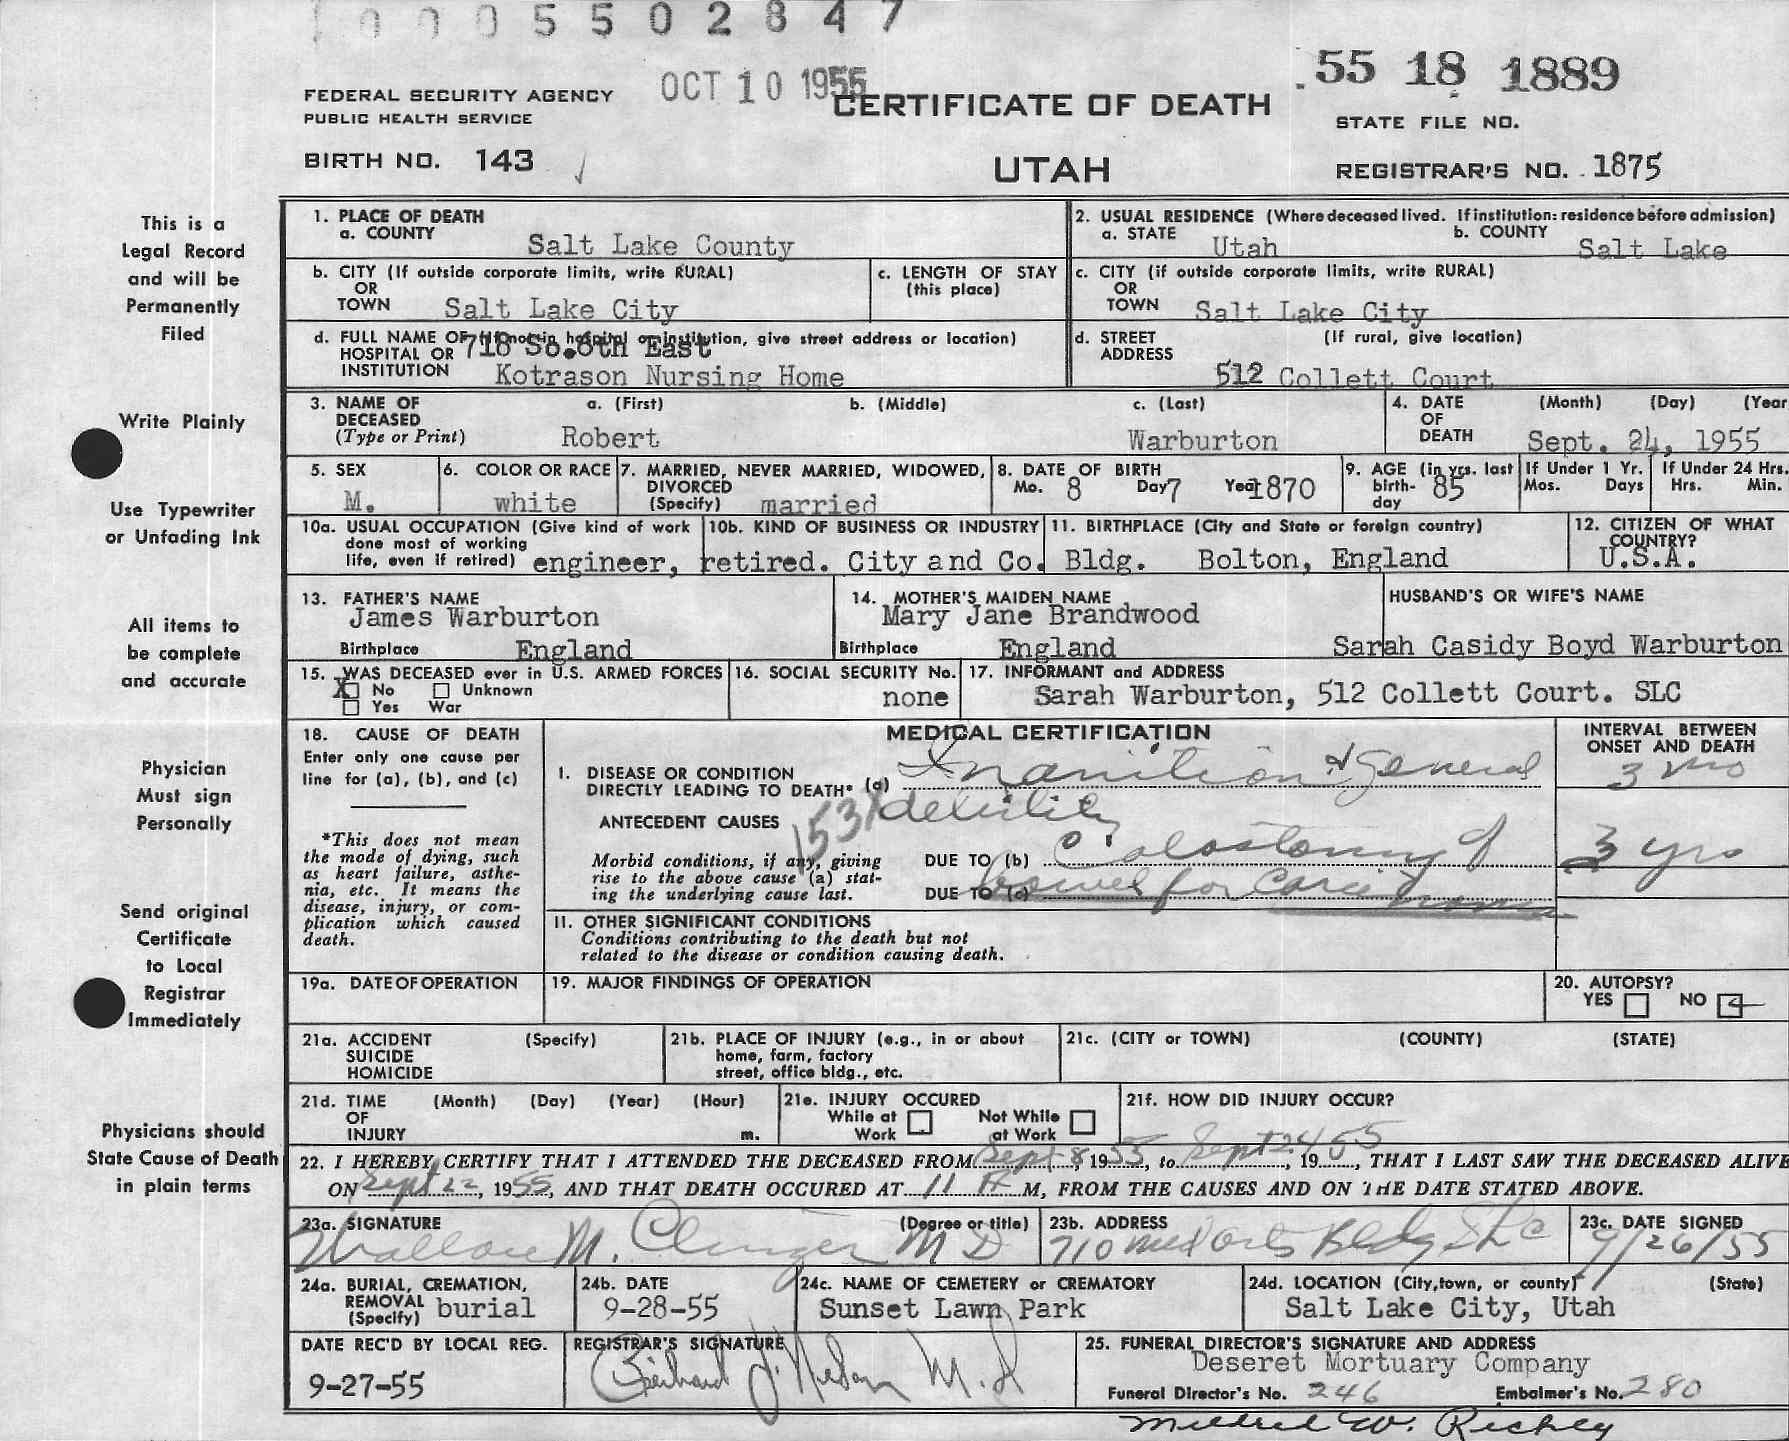 1 0 0 0 5 5 0 2 8 4 7
FEDERAL SECURITY AGENCY
PUBLIC HEALTH SERVICE
OCT 10 1955
CERTIFICATE OF DEATH
55 18 1889
STATE FILE NO.
BIRTH NO. 143
UTAH
REGISTRAR'S NO. 1875
This is a
Legal Record
and will be
Permanently
Filed
Write Plainly
Use Typewriter
or Unfading Ink
All items to
be complete
and accurate
Physician
Must sign
Personally
Send original
Certificate
to Local
Registrar
Immediately
Physicians should
State Cause of Death
in plain terms
1. PLACE OF DEATH
a. COUNTY Salt Lake County
2. USUAL RESIDENCE (Where deceased lived. If institution: residence before admission)
a. STATE Utah b. COUNTY Salt Lake
b. CITY (If outside corporate limits, write RURAL)
OR
TOWN Salt Lake City
c. LENGTH OF STAY
(this place)
c. CITY (if outside corporate limits, write RURAL)
OR
TOWN Salt Lake City
d. FULL NAME OF (If not in hospital or institution, give street address or location)
HOSPITAL OR 718 So. 6th East
INSTITUTION Kotrason Nursing Home
d. STREET (If rural, give location)
ADDRESS
512 Collett Court
3. NAME OF a. (First) b. (Middle) c. (Last)
DECEASED
(Type or Print) Robert Warburton
4. DATE (Month) (Day) (Year
OF
DEATH Sept. 24, 1955
5. SEX
M.
6. COLOR OR RACE
white
7. MARRIED, NEVER MARRIED, WIDOWED,
DIVORCED
(Specify) married
8. DATE OF BIRTH
Mo. 8 Day 7 Year 1870
9. AGE (in yrs. last
birth- 85
day
If Under 1 Yr.
Mos. Days
If Under 24 Hrs.
Hrs. Min.
10a. USUAL OCCUPATION (Give kind of work
done most of working
life, even if retired) engineer, retired.
10b. KIND OF BUSINESS OR INDUSTRY
City and Co. Bldg.
11. BIRTHPLACE (City and State or foreign country)
Bolton, England
12. CITIZEN OF WHAT
COUNTRY?
U.S.A.
13. FATHER'S NAME
James Warburton
Birthplace England
14. MOTHER'S MAIDEN NAME
Mary Jane Brandwood
Birthplace England
HUSBAND'S OR WIFE'S NAME
Sarah Casidy Boyd Warburton
15. WAS DECEASED ever in U.S. ARMED FORCES
X No Unknown
Yes War
16. SOCIAL SECURITY No.
none
17. INFORMANT and ADDRESS
Sarah Warburton, 512 Collett Court. SLC
18. CAUSE OF DEATH
Enter only one cause per
line for (a), (b), and (c)
*This does not mean
the mode of dying, such
as heart failure, asthe-
nia, etc. It means the
disease, injury, or com-
plication which caused
death.
MEDICAL CERTIFICATION
INTERVAL BETWEEN
ONSET AND DEATH
I. DISEASE OR CONDITION
DIRECTLY LEADING TO DEATH* (a) Inanition & General 3 mo
debility
153X
ANTECEDENT CAUSES
Morbid conditions, if any, giving
rise to the above cause (a) stat-
ing the underlying cause last.
DUE TO (b) Colostomy of 3 yrs
DUE TO (c) bowel for Carcinoma
II. OTHER SIGNIFICANT CONDITIONS
Conditions contributing to the death but not
related to the disease or condition causing death.
19a. DATE OF OPERATION
19. MAJOR FINDINGS OF OPERATION
20. AUTOPSY?
YES NO
21a. ACCIDENT (Specify)
SUICIDE
HOMICIDE
21b. PLACE OF INJURY (e.g., in or about
home, farm, factory
street, office bldg., etc.
21c. (CITY or TOWN) (COUNTY) (STATE)
21d. TIME (Month) (Day) (Year) (Hour)
OF
INJURY m.
21e. INJURY OCCURED
While at Not While
Work at Work
21f. HOW DID INJURY OCCUR?
22. I HEREBY CERTIFY THAT I ATTENDED THE DECEASED FROM Sept 8, 1955, to Sept 24, 1955, THAT I LAST SAW THE DECEASED ALIVE
ON Sept 22, 1955, AND THAT DEATH OCCURED AT 11 P M, FROM THE CAUSES AND ON THE DATE STATED ABOVE.
23a. SIGNATURE (Degree or title)
Wallace M. Clinger MD
23b. ADDRESS
710 Med Arts Bldg SLC
23c. DATE SIGNED
9/26/55
24a. BURIAL, CREMATION,
REMOVAL burial
(Specify)
24b. DATE
9-28-55
24c. NAME OF CEMETERY or CREMATORY
Sunset Lawn Park
24d. LOCATION (City, town, or county) (State)
Salt Lake City, Utah
DATE REC'D BY LOCAL REG.
9-27-55
REGISTRAR'S SIGNATURE
M.D.
25. FUNERAL DIRECTOR'S SIGNATURE AND ADDRESS
Deseret Mortuary Company
Funeral Director's No. 246 Embalmer's No. 280
Mildred W. Richley